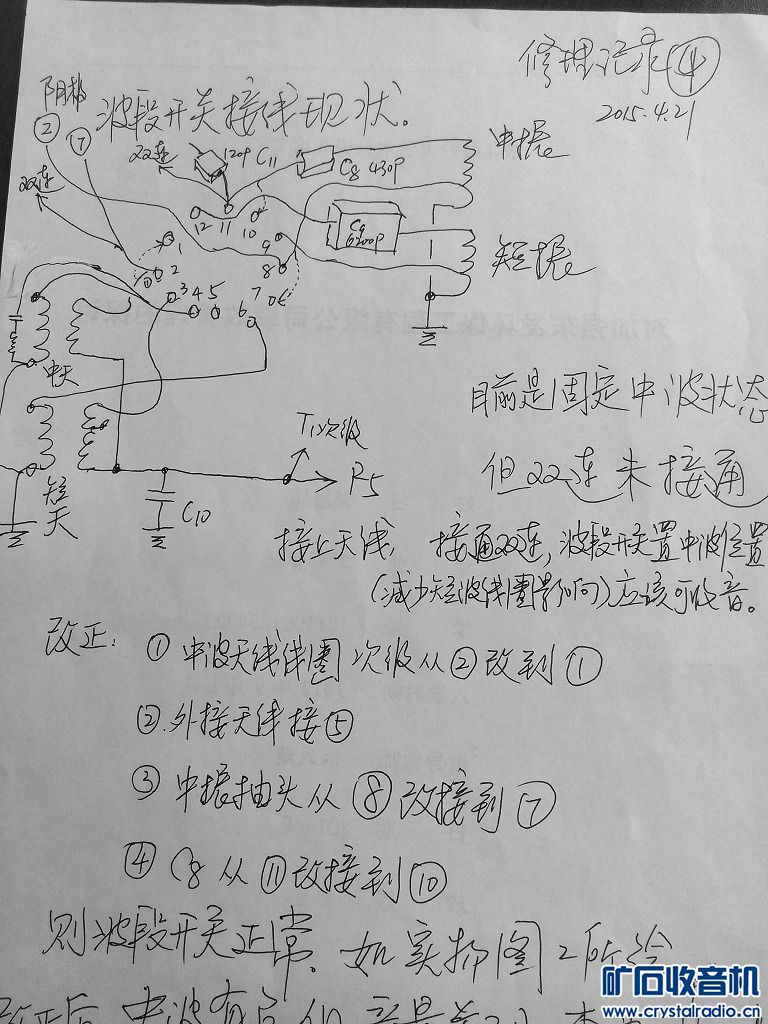 修理记录④
2015.4.21
波段开关接线现状。
阴栅
②
⑦
双连
双连
120P C11
C8 430P
中振
C9
6200P
短振
12
11
10
9
8
7
6
1
2
3
4
5
中天
短天
C10
T1次级
R5
目前是固定中波状态
但双连未接通
接上天线 接通双连,波段开关置中波位置
(减少短波线圈影响)应该可收音。
改正: ① 中波天线线圈次级从②改到①
②外接天线接⑤
③ 中振抽头从⑧改接到⑦
④ C8从⑪改接到⑩
则波段开关正常。如实物图2所绘
改正后 中波有台
矿石收音机
www.crystalradio.cn